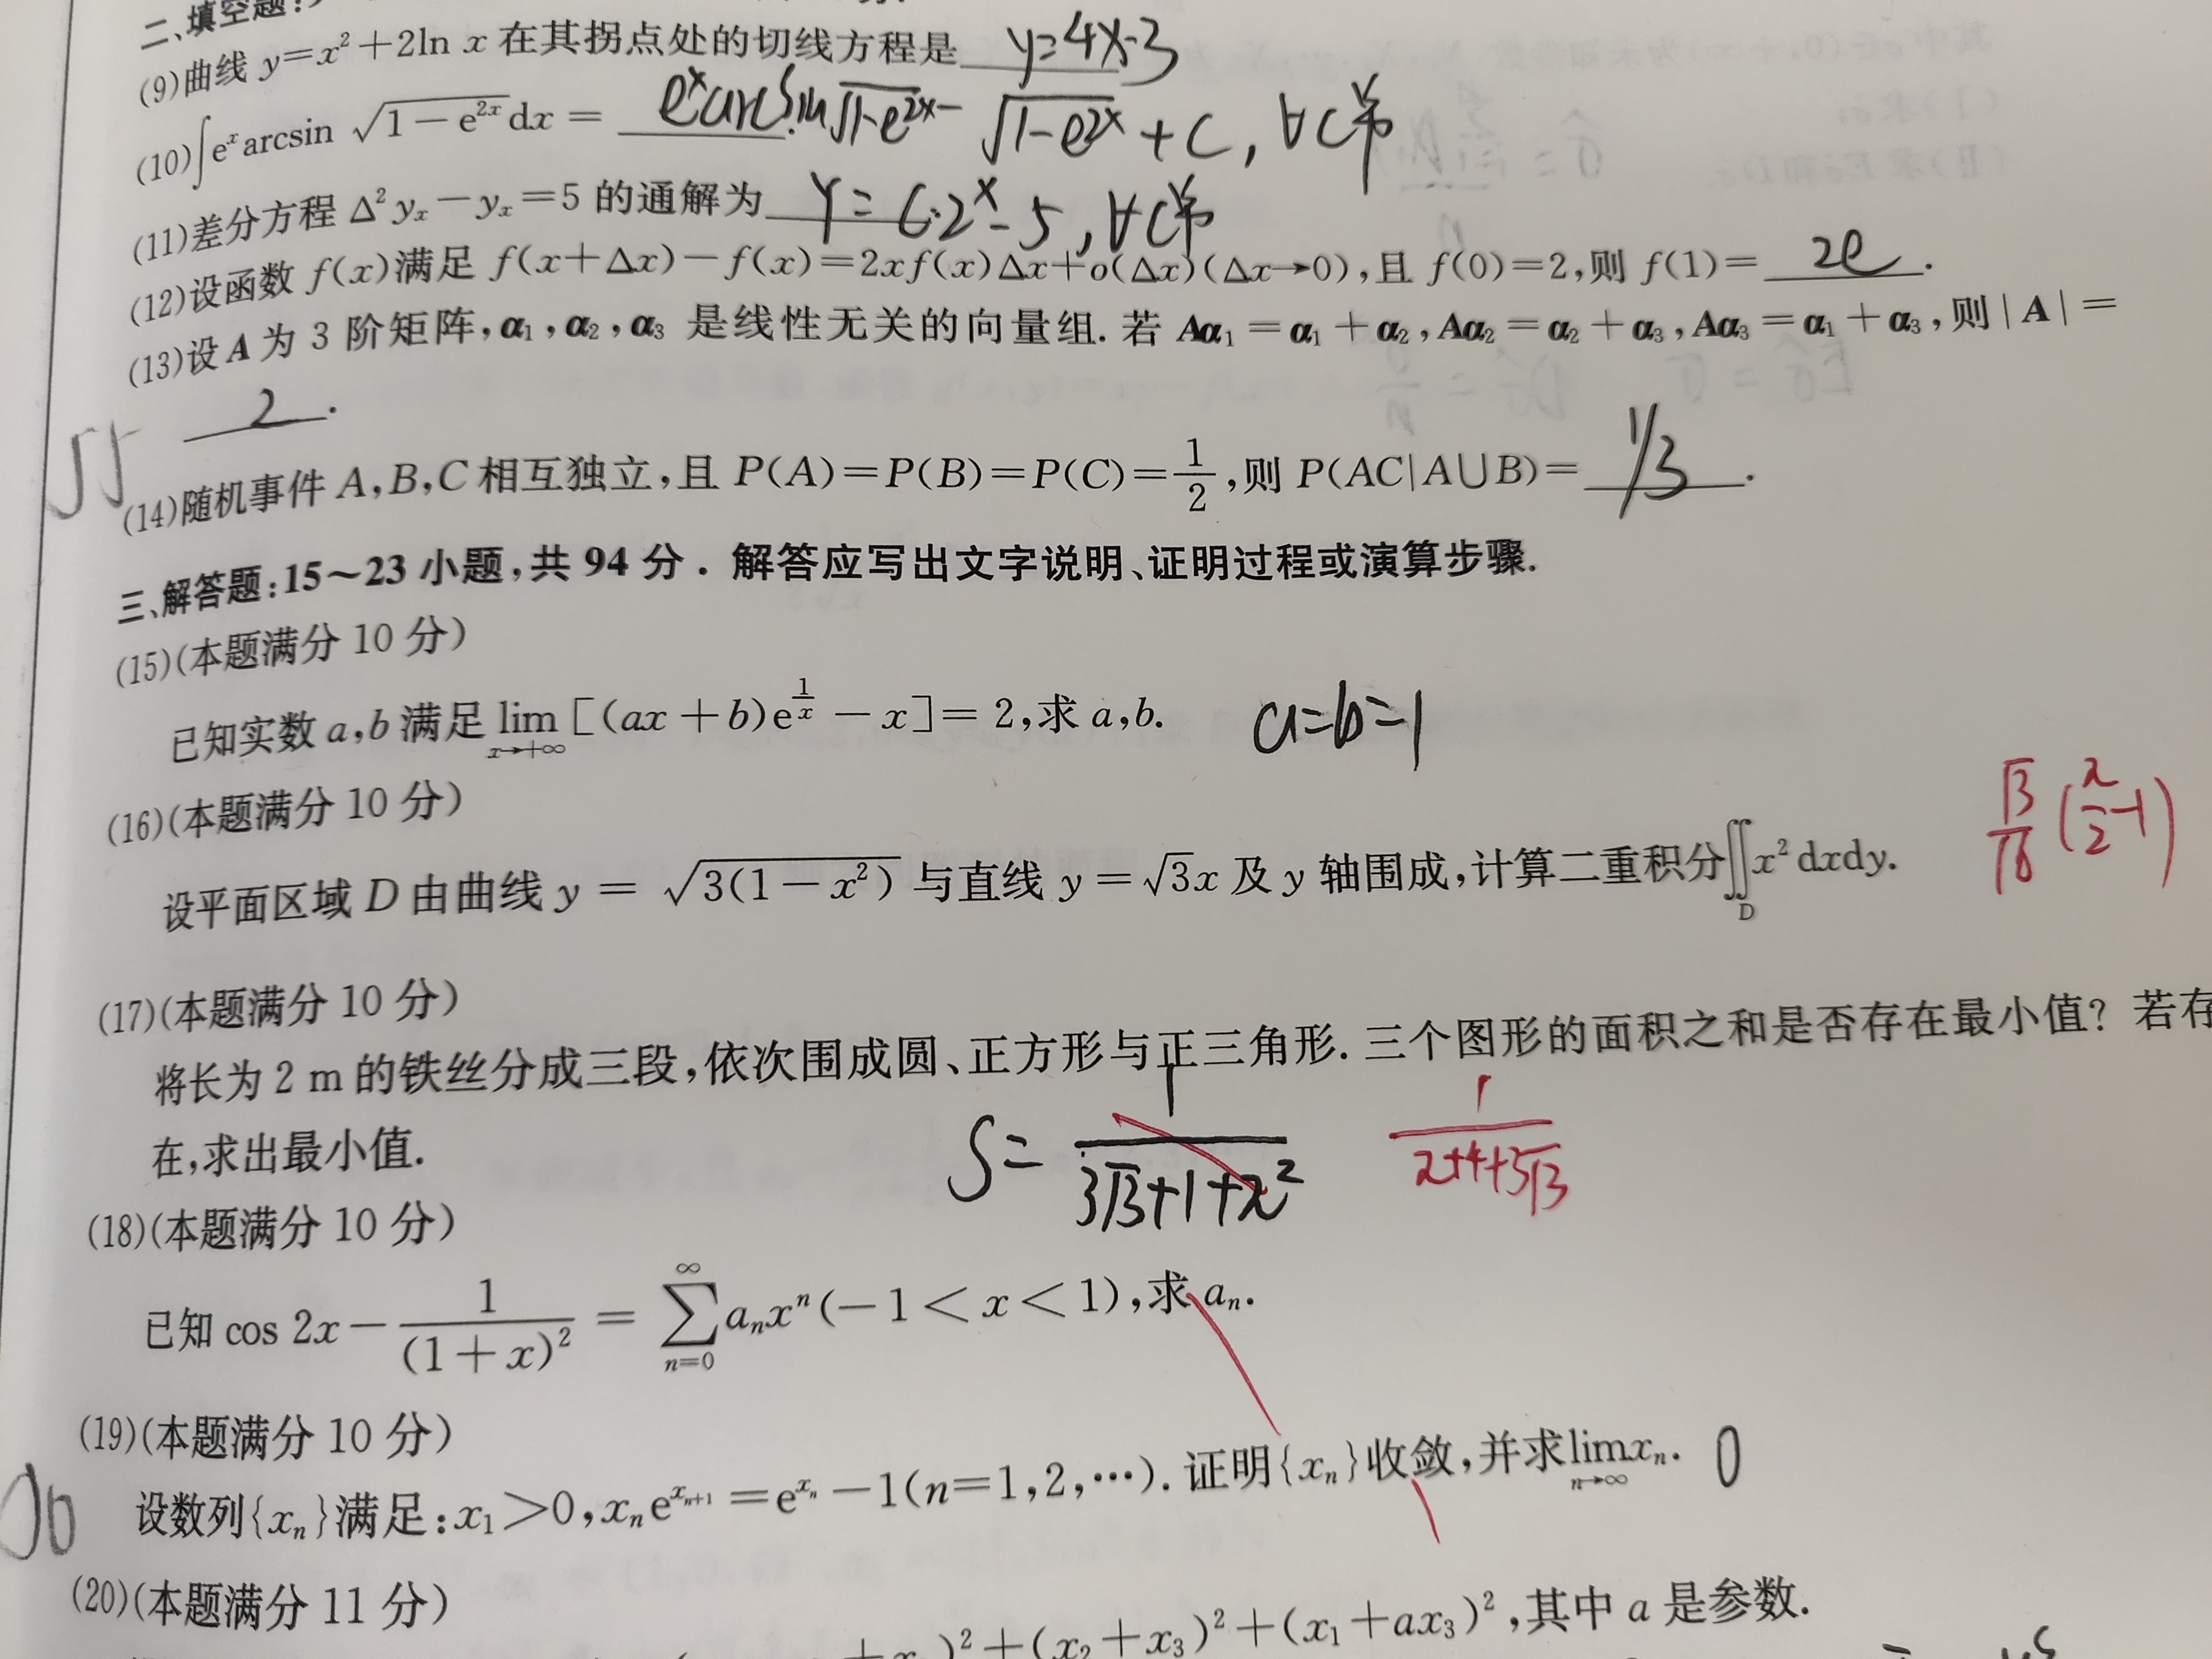 二、填空题:
(9)曲线 y=x²+2ln x 在其拐点处的切线方程是 y=4x-3
(10)∫eˣarcsin √(1-e²ˣ)dx= eˣarcsin√(1-e²ˣ) - √(1-e²ˣ) + C, ∀C
(11)差分方程 Δ²yₓ-yₓ=5 的通解为 Y=C·2ˣ-5, ∀C
(12)设函数 f(x)满足 f(x+Δx)-f(x)=2xf(x)Δx+o(Δx)(Δx→0),且 f(0)=2,则 f(1)= 2e .
(13)设 A 为 3 阶矩阵,α₁,α₂,α₃ 是线性无关的向量组. 若 Aα₁=α₁+α₂,Aα₂=α₂+α₃,Aα₃=α₁+α₃,则|A|=
2 .
(14)随机事件 A,B,C 相互独立,且 P(A)=P(B)=P(C)=1/2,则 P(AC|A∪B)= 1/3 .
三、解答题:15~23 小题,共 94 分. 解答应写出文字说明、证明过程或演算步骤.
(15)(本题满分 10 分)
已知实数 a,b 满足 lim x→+∞ [(ax+b)e^(1/x)-x]=2,求 a,b. a=b=1
(16)(本题满分 10 分)
设平面区域 D 由曲线 y=√(3(1-x²)) 与直线 y=√3x 及 y 轴围成,计算二重积分∬_D x²dxdy. √3/16 (π/2-1)
(17)(本题满分 10 分)
将长为 2 m 的铁丝分成三段,依次围成圆、正方形与正三角形. 三个图形的面积之和是否存在最小值? 若存
在,求出最小值. S= 1/(3√3+1+π²) 1/(π+4+3√3)
(18)(本题满分 10 分)
已知 cos 2x-1/(1+x)²=∑_{n=0}^{∞} aₙxⁿ(-1<x<1),求 aₙ.
(19)(本题满分 10 分)
设数列{xₙ}满足:x₁>0,xₙe^(xₙ₊₁)=e^(xₙ)-1(n=1,2,…). 证明{xₙ}收敛,并求 lim n→∞ xₙ. 0
(20)(本题满分 11 分)
)²+(x₂+x₃)²+(x₁+ax₃)²,其中 a 是参数.